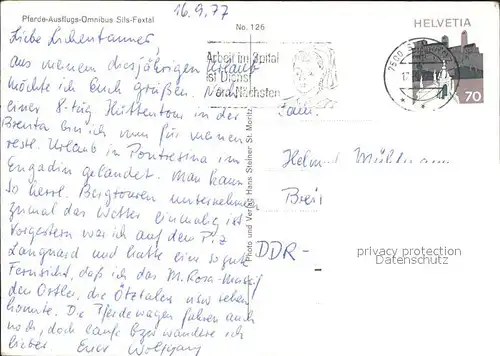 16.9.77
Pferde-Ausflugs-Omnibus Sils-Fextal
No. 126
HELVETIA
70
7500
17.
Arbeit im Spital
ist Dienst
am Nächsten
Liebe
aus meinem diesjährigen Urlaub
möchte ich Euch grüßen. Nach
einer 8-täg Hüttentour in der
Brenta bin ich nun für meinen
restl. Urlaub in Pontresina im
Engadin gelandet. Man kann
so herrl. Bergtouren unternehmen
zumal das Wetter einmalig ist
Vorgestern war ich auf dem Piz
Languard und hatte eine so gute
Fernsicht, daß ich das M. Rosa-Massiv
den Ortler, die Ötztaler usw sehen
konnte. Die Pferdewagen fahren auch
noch, doch laufe bzw wandere ich
lieber. Euer Wolfgang
Photo und Verlag Hans Steiner St. Moritz
Fam.
Helmut
DDR-
privacy protection
Datenschutz